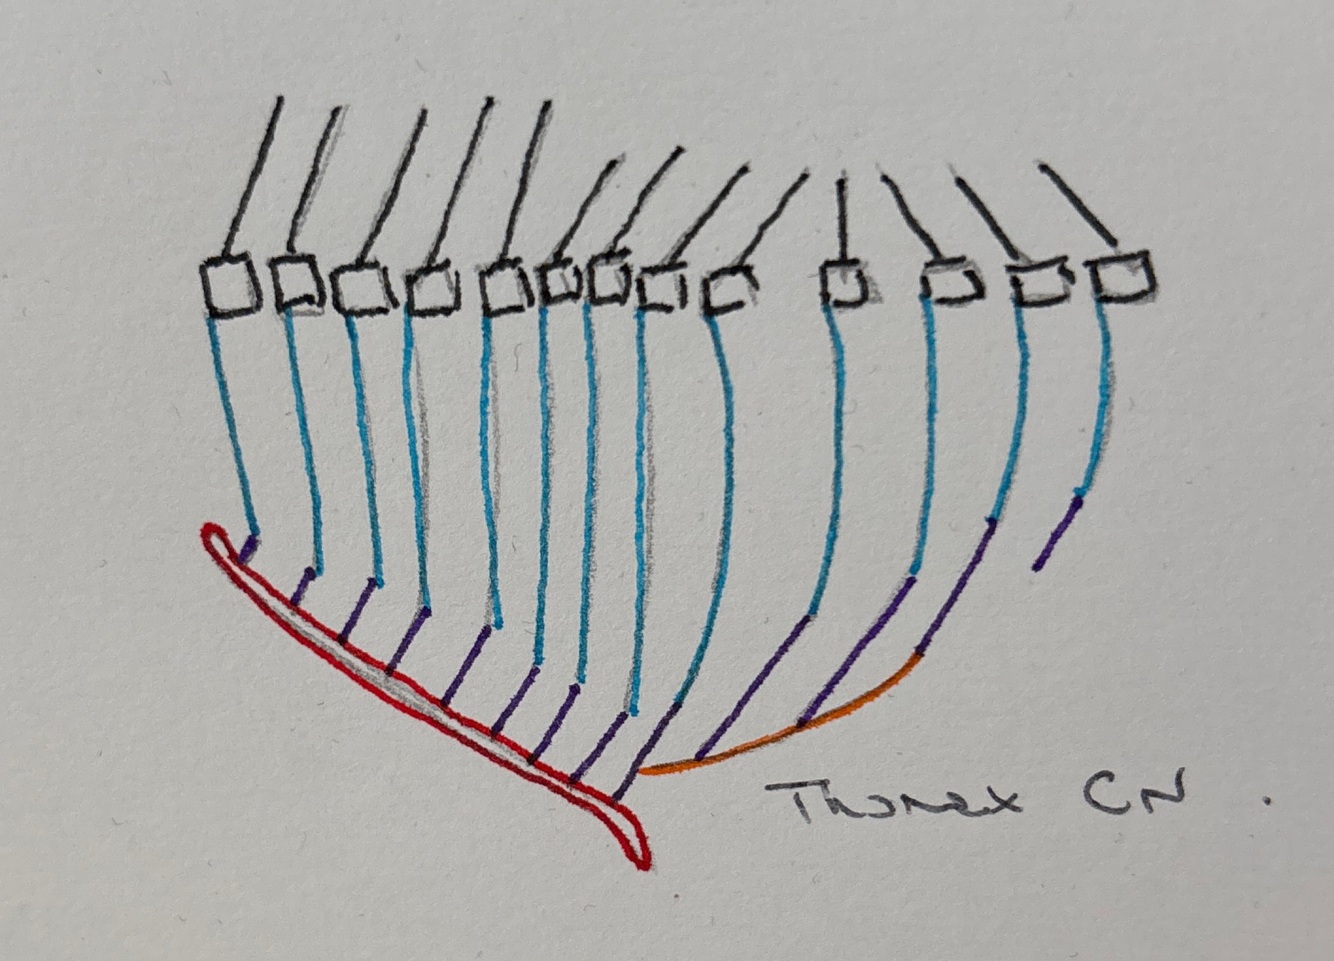 Thorax CN .